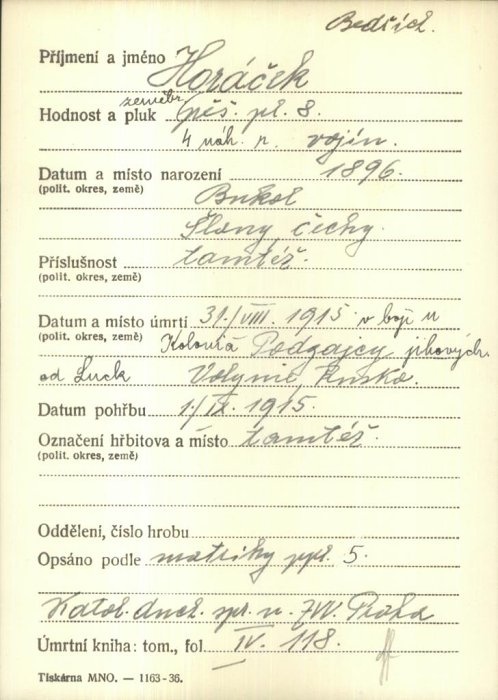 Bedřich.
Příjmení a jméno Horáček
zeměbr.
Hodnost a pluk pěš. pl. 8.
4 náh. r. vojín.
Datum a místo narození 1896.
(polit. okres, země) Bukol
Slaný, čechy.
Příslušnost tamtéž.
(polit. okres, země)
Datum a místo úmrtí 31./VIII. 1915. v boji u
(polit. okres, země) Podgajcy jihových.
od Luck Volynie, Rusko.
Datum pohřbu 1./IX. 1915.
Označení hřbitova a místo tamtéž.
(polit. okres, země)
Oddělení, číslo hrobu
Opsáno podle matriky ppl. 5.
Katol. duch. spr. u ZVV. Praha
Úmrtní kniha: tom., fol IV. 118.
Tiskárna MNO. — 1163-36.